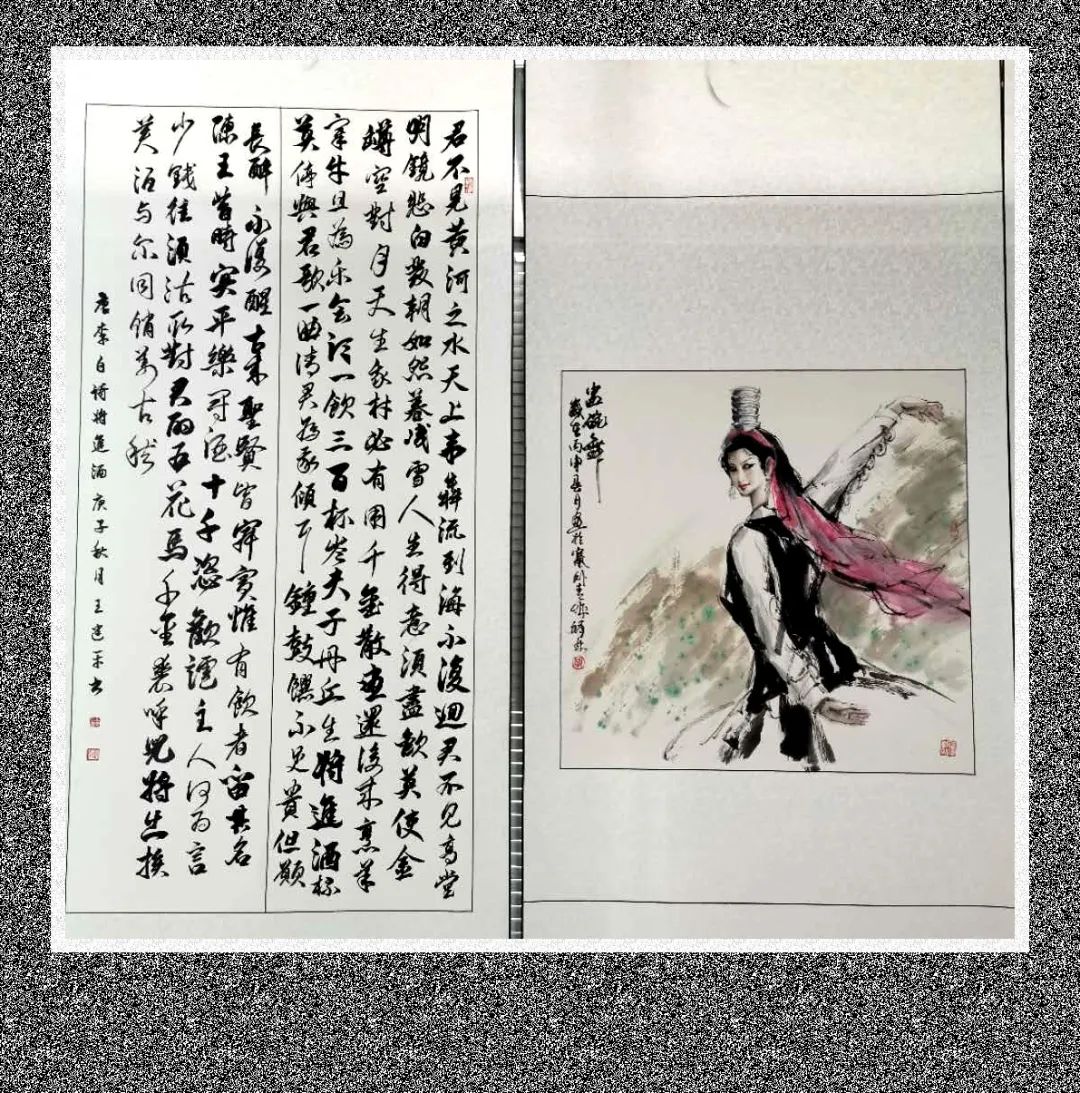 君不見黄河之水天上来奔流到海不復迴君不見高堂
明鏡悲白发朝如暮成雪人生得意須盡歡莫使金
罇空對月天生我材必有用千金散盡還復来烹羊
宰牛且為乐会须一飲三百杯岑夫子丹丘生将進酒杯
莫停與君歌一曲请君為我傾耳鐘鼓饌不足貴但願
長醉不復醒古来聖賢皆寂寞惟有飲者留其名
陳王昔時宴平樂斗酒十千恣歡謔主人何为言
少錢徑須沽取對君酌五花馬千金裘呼兒将出换
美酒与尔同销万古愁
唐李白诗将進酒庚子秋月王建书
盅碗舞
歲在丙申月畫於